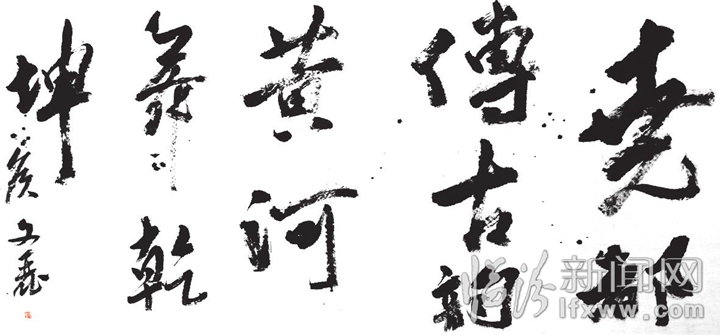 尧都
傳古韵
黄河
舞乾
坤
临汾新闻网
lfxww.com